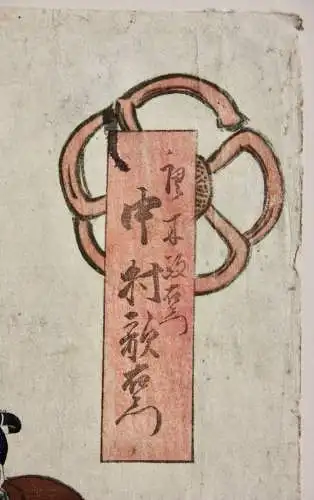 唐木政右衛門
中村歌右衛門